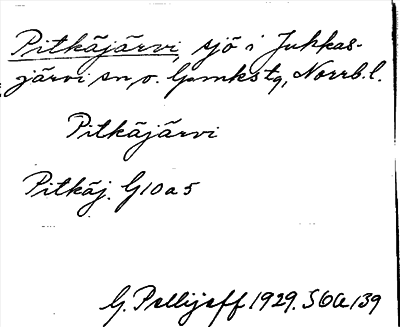 Pitkäjärvi, sjö i Jukkas-
järvi sn o. lpmkstg, Norrb. l.
Pitkäjärvi
Pitkäj. G10a5
G. Pellijeff 1929. S6a139